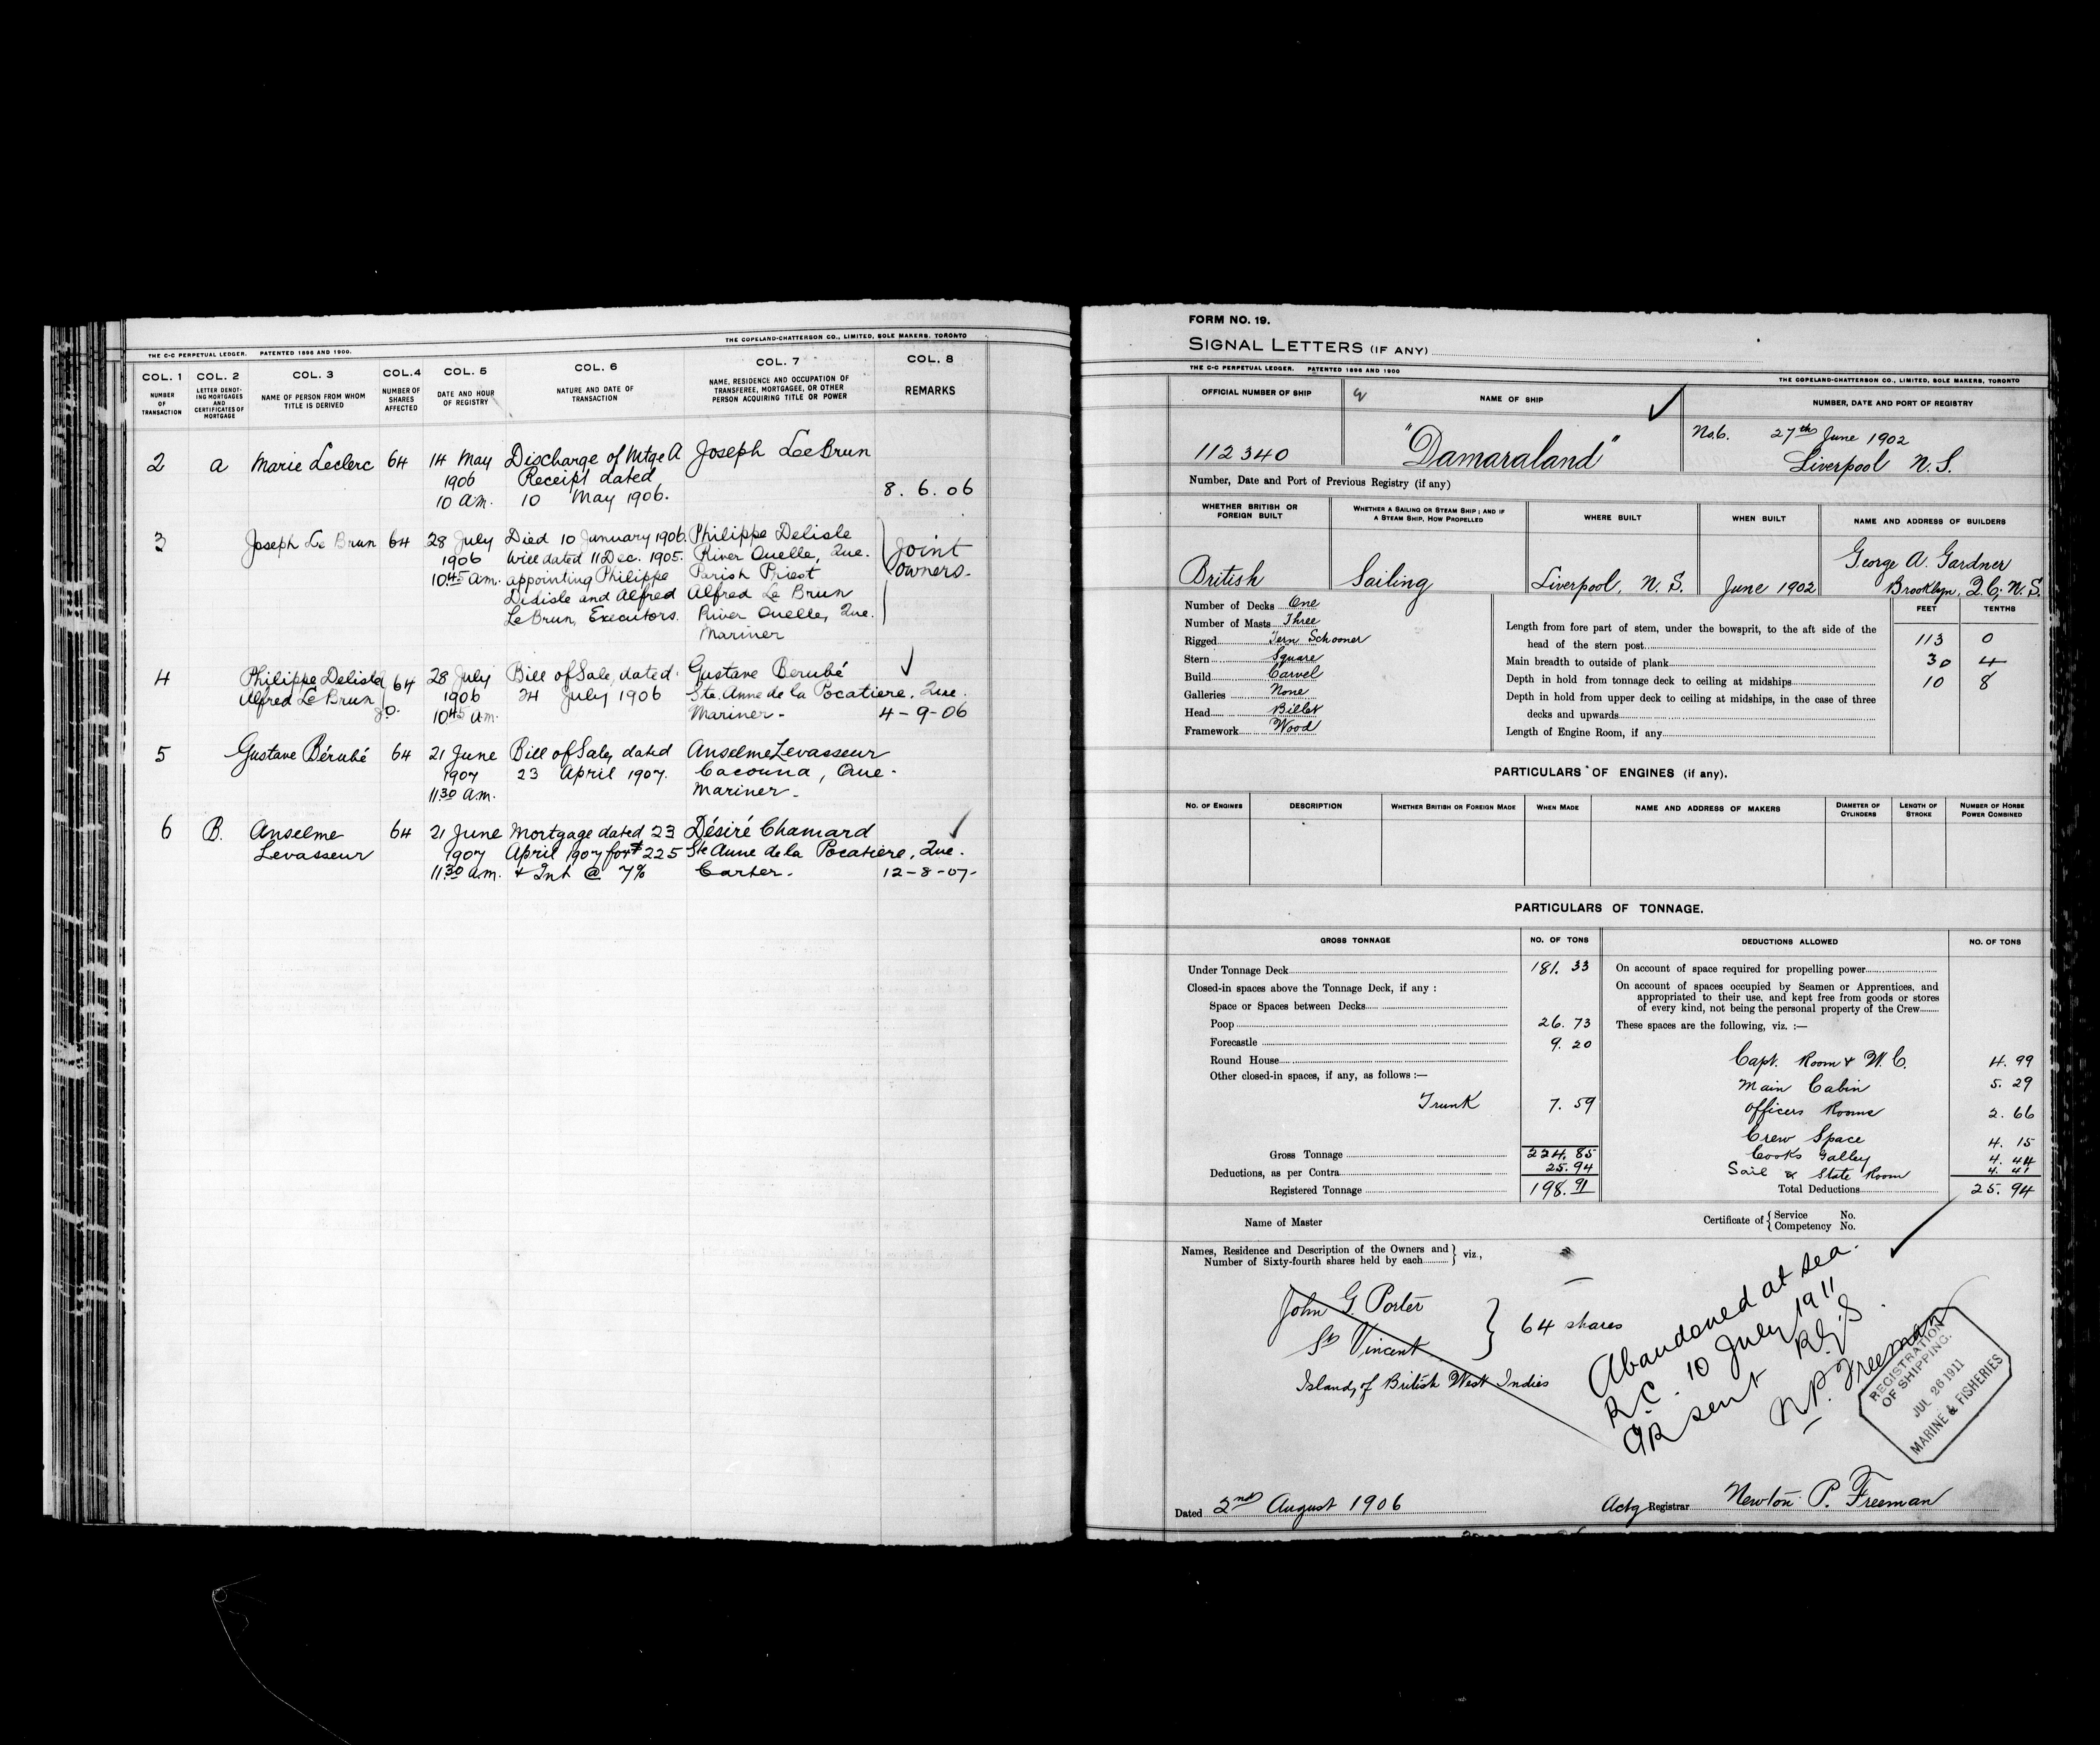 THE C-C PERPETUAL LEDGER. PATENTED 1896 AND 1900.
THE COPELAND-CHATTERSON CO., LIMITED, SOLE MAKERS, TORONTO
COL. 1 COL. 2 COL. 3 COL. 4 COL. 5 COL. 6 COL. 7 COL. 8
NUMBER OF TRANSACTION
LETTER DENOTING MORTGAGES AND CERTIFICATES OF MORTGAGE
NAME OF PERSON FROM WHOM TITLE IS DERIVED
NUMBER OF SHARES AFFECTED
DATE AND HOUR OF REGISTRY
NATURE AND DATE OF TRANSACTION
NAME, RESIDENCE AND OCCUPATION OF TRANSFEREE, MORTGAGEE, OR OTHER PERSON ACQUIRING TITLE OR POWER
REMARKS
2 a Marie Leclerc 64 14 May Discharge of Mtge A Joseph LeBrun
1906 Receipt dated
10 a.m. 10 May 1906. 8. 6. 06
3 Joseph Le Brun 64 28 July Died 10 January 1906. Philippe Delisle
1906 Will dated 11 Dec. 1905. River Ouelle, Que. Joint
10 45 a.m. appointing Philippe Parish Priest owners.
Delisle and Alfred Alfred Le Brun
LeBrun, Executors. River Ouelle, Que.
Mariner
4 Philippe Delisle 64 28 July Bill of Sale, dated Gustave Berubé
Alfred Le Brun 1906 24 July 1906 Ste. Anne de la Pocatiere, Que.
J.O. 10 45 a.m. Mariner - 4-9-06
5 Gustave Bérubé 64 21 June Bill of Sale, dated Anselme Levasseur
1907 23 April 1907. Cacouna, Que.
11 30 a.m. Mariner -
6 B. Anselme 64 21 June Mortgage dated 23 Désiré Chamard
Levasseur 1907 April 1907 for $225 Ste Anne de la Pocatiere, Que.
11 30 a.m. + Int @ 7% Carter. 12-8-07-
FORM NO. 19.
SIGNAL LETTERS (IF ANY)
THE C-C PERPETUAL LEDGER. PATENTED 1896 AND 1900
THE COPELAND-CHATTERSON CO., LIMITED, SOLE MAKERS, TORONTO
OFFICIAL NUMBER OF SHIP NAME OF SHIP NUMBER, DATE AND PORT OF REGISTRY
112340 "Damaraland" No.6. 27th June 1902
Liverpool N.S.
Number, Date and Port of Previous Registry (if any)
WHETHER BRITISH OR FOREIGN BUILT
WHETHER A SAILING OR STEAM SHIP; AND IF A STEAM SHIP, HOW PROPELLED
WHERE BUILT
WHEN BUILT
NAME AND ADDRESS OF BUILDERS
British Sailing Liverpool, N.S. June 1902 George A. Gardner
Brooklyn, Q.C; N.S.
Number of Decks One
Number of Masts Three
Rigged Tern Schooner
Stern Square
Build Carvel
Galleries None
Head Billet
Framework Wood
FEET TENTHS
Length from fore part of stem, under the bowsprit, to the aft side of the
head of the stern post 113 0
Main breadth to outside of plank 30 4
Depth in hold from tonnage deck to ceiling at midships 10 8
Depth in hold from upper deck to ceiling at midships, in the case of three
decks and upwards
Length of Engine Room, if any
PARTICULARS OF ENGINES (if any).
NO. OF ENGINES DESCRIPTION WHETHER BRITISH OR FOREIGN MADE WHEN MADE NAME AND ADDRESS OF MAKERS DIAMETER OF CYLINDERS LENGTH OF STROKE NUMBER OF HORSE POWER COMBINED
PARTICULARS OF TONNAGE.
GROSS TONNAGE NO. OF TONS DEDUCTIONS ALLOWED NO. OF TONS
Under Tonnage Deck 181. 33
Closed-in spaces above the Tonnage Deck, if any :
Space or Spaces between Decks
Poop 26. 73
Forecastle 9. 20
Round House
Other closed-in spaces, if any, as follows :—
Trunk 7. 59
Gross Tonnage 224. 85
Deductions, as per Contra 25.94
Registered Tonnage 198. 91
On account of space required for propelling power
On account of spaces occupied by Seamen or Apprentices, and
appropriated to their use, and kept free from goods or stores
of every kind, not being the personal property of the Crew
These spaces are the following, viz. :—
Capt. Room & W.C. 4. 99
Main Cabin 5. 29
Officers Rooms 2. 66
Crew Space 4. 15
Cooks Galley 4. 44
Sail & State Room 4. 41
Total Deductions 25. 94
Name of Master
Certificate of { Service No.
Competency No.
Names, Residence and Description of the Owners and } viz.,
Number of Sixty-fourth shares held by each
John G. Porter
St Vincent } 64 shares
Island, of British West Indies
Abandoned at sea.
R.C. 10 July 1911
sent
N.P. Freeman
REGISTRATION
OF SHIPPING.
JUL 26 1911
MARINE & FISHERIES
Dated 2nd August 1906
Actg Registrar Newton P. Freeman